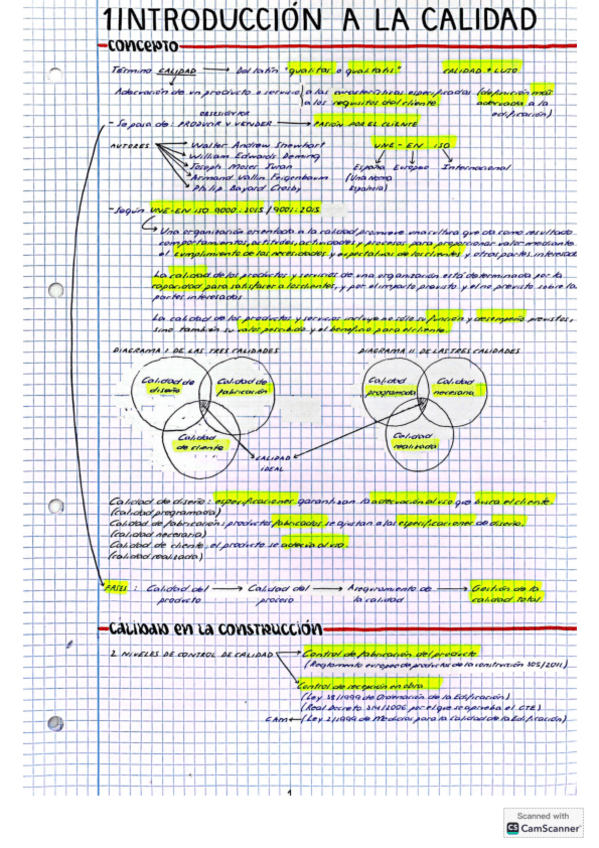 1 INTRODUCCIÓN A LA CALIDAD
CONCEPTO
Término CALIDAD → Del latín "qualitas o qualitatis" CALIDAD ≠ LUJO
Adecuación de un producto o servicio a las características especificadas (definición más
a los requisitos del cliente adecuada a la
edificación)
OBSESIÓN POR
- Se pasa de: PRODUCIR Y VENDER → PASIÓN POR EL CLIENTE
AUTORES
Walter Andrew Shewhart
William Edwards Deming
Joseph Moses Juran
Armand Vallin Feigenbaum
Philip Bayard Crosby
UNE - EN - ISO
España Europeo Internacional
(Una Norma
Española)
- Según UNE-EN ISO 9000:2015 / 9001:2015
Una organización orientada a la calidad promueve una cultura que da como resultado
comportamientos, actitudes, actividades y procesos para proporcionar valor mediante
el cumplimiento de las necesidades y expectativas de los clientes y otras partes interesad
La calidad de los productos y servicios de una organización está determinada por la
capacidad para satisfacer a los clientes, y por el impacto previsto y el no previsto sobre la
partes interesadas
La calidad de los productos y servicios incluye no sólo su función y desempeño previstos,
sino también su valor percibido y el beneficio para el cliente.
DIAGRAMA I DE LAS TRES CALIDADES DIAGRAMA II DE LAS TRES CALIDADES
Calidad de diseño
Calidad de fabricación
Calidad de cliente
Calidad programada
Calidad necesaria
Calidad realizada
CALIDAD
IDEAL
Calidad de diseño: especificaciones garantizan la adecuación al uso que busca el cliente
(calidad programada)
Calidad de fabricación: productos fabricados se ajustan a las especificaciones de diseño.
(calidad necesaria)
Calidad de cliente: el producto se adecua al uso.
(calidad realizada)
FASES: Calidad del → Calidad del → Aseguramiento de → Gestión de la
producto proceso la calidad calidad total
CALIDAD EN LA CONSTRUCCIÓN
2 NIVELES DE CONTROL DE CALIDAD
Control de fabricación del producto
(Reglamento europeo de productos de la construcción 305/2011)
Control de recepción en obra
(Ley 38/1999 de Ordenación de la Edificación)
(Real Decreto 314/2006 por el que se aprueba el CTE)
CAM ← (Ley 2/1999 de Medidas para la Calidad de la Edificación)
1
Scanned with
CS CamScanner